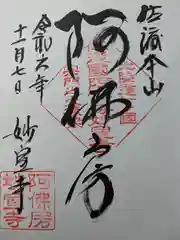 佐渡本山
阿佛房
妙宣寺
令和六年
十一月七日
阿佛房
妙宣寺